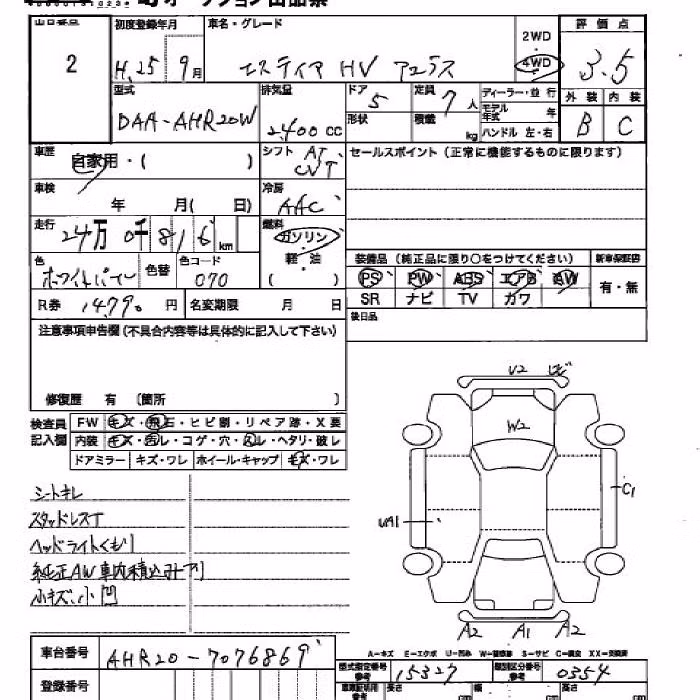 初度登録年月 車名・グレード 2WD 評価点
2 H.25 9月 エスティマ HV アエラス 4WD 3.5
型式 排気量 ドア 5 定員 7人 ディーラー・並行 外装 内装
DAA-AHR20W 2,400cc 形状 積載 kg モデル年式 年 B C
ハンドル 左・右
車歴 自家用・( ) シフト AT、CVT セールスポイント（正常に機能するものに限ります）
車検 年 月( 日) 冷房 AAC
走行 24万0千816km 燃料 ガソリン
軽・油
( )
装備品（純正品に限り○をつけてください） 新車保証書
色 ホワイトパール 色替 色コード 070 PS PW ABS エアB AW 有・無
SR ナビ TV カワ
R券 14790円 名変期限 月 日
後日品
注意事項申告欄(不具合内容等は具体的に記入して下さい)
修復歴 有 〔箇所 〕
検査員記入欄 FW キズ・飛石・ヒビ割・リペア跡・X要
内装 キズ・汚レ・コゲ・穴・スレ・ヘタリ・破レ
ドアミラー キズ・ワレ ホイール・キャップ キズ・ワレ
U2
W2
C1
UA1
A2 A1 A2
シートキレ
スタッドレスT
ヘッドライトくもり
純正AW車内積込み
小キズ、小凹
A-キズ E-エクボ U-凹み W-補修跡 S-サビ C-腐食 XX-交換済
車台番号 AHR20-7076869
型式指定番号 参考 15327 類別区分番号 参考 0354
登録番号
長さ 幅 高さ